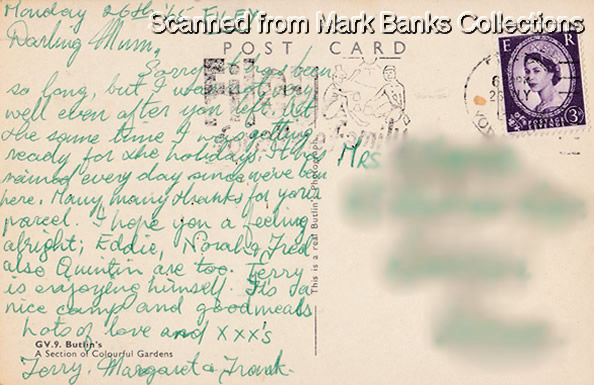 Scanned from Mark Banks Collections
Monday 26th
Darling Mum,
POST CARD
Sorry it has been
so long, but I was not
well even after you left. At
the same time I was getting
ready for the holidays. It has
rained every day since we've been
here. Many many thanks for your
parcel. I hope you a feeling
alright; Eddie, Norah & Fred
also Quintin are too. Terry
is enjoyeing himself. Its a
nice camp and good meals
Lots of love and xxx's
Terry. Margaret & Frank.
GV.9. Butlin's
A Section of Colourful Gardens
This is a real Butlin's Photograph
Filey
for
family
Mrs
E R
POSTAGE
REVENUE
3D